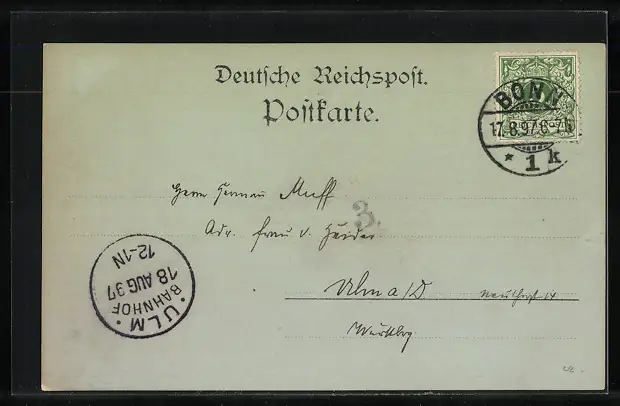 Deutsche Reichspost.
Postkarte.
BONN
17.8.97.6-7N
* 1 k
Herrn Hermann Muff
3.
Adr. Frau v.
Ulm a/D
Württbg
ULM
BAHNHOF
18 AUG 97
12-1N